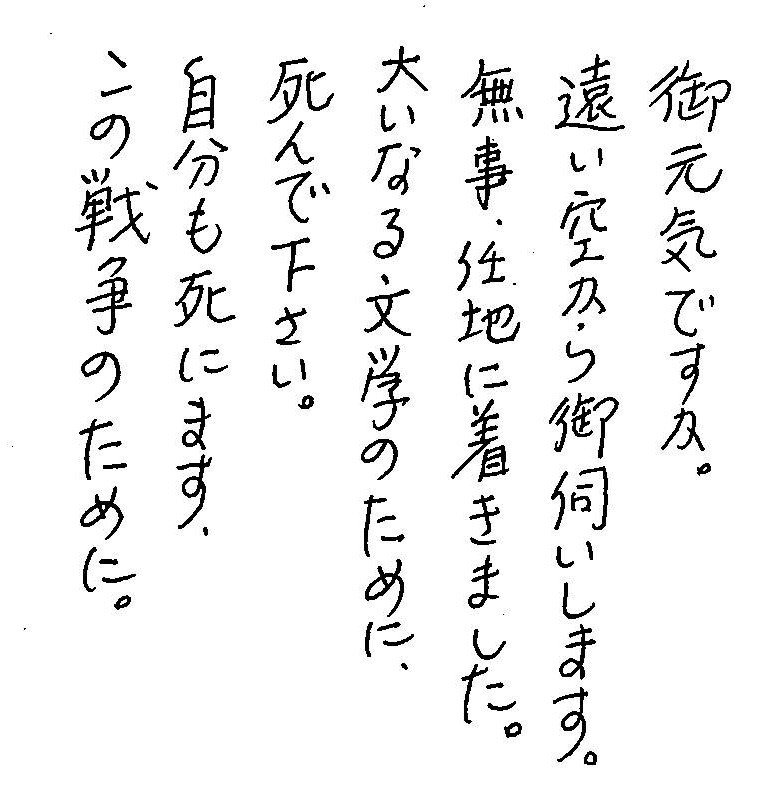 御元気ですか。
遠い空から御伺いします。
無事、任地に着きました。
大いなる文学のために、
死んで下さい。
自分も死にます、
この戦争のために。